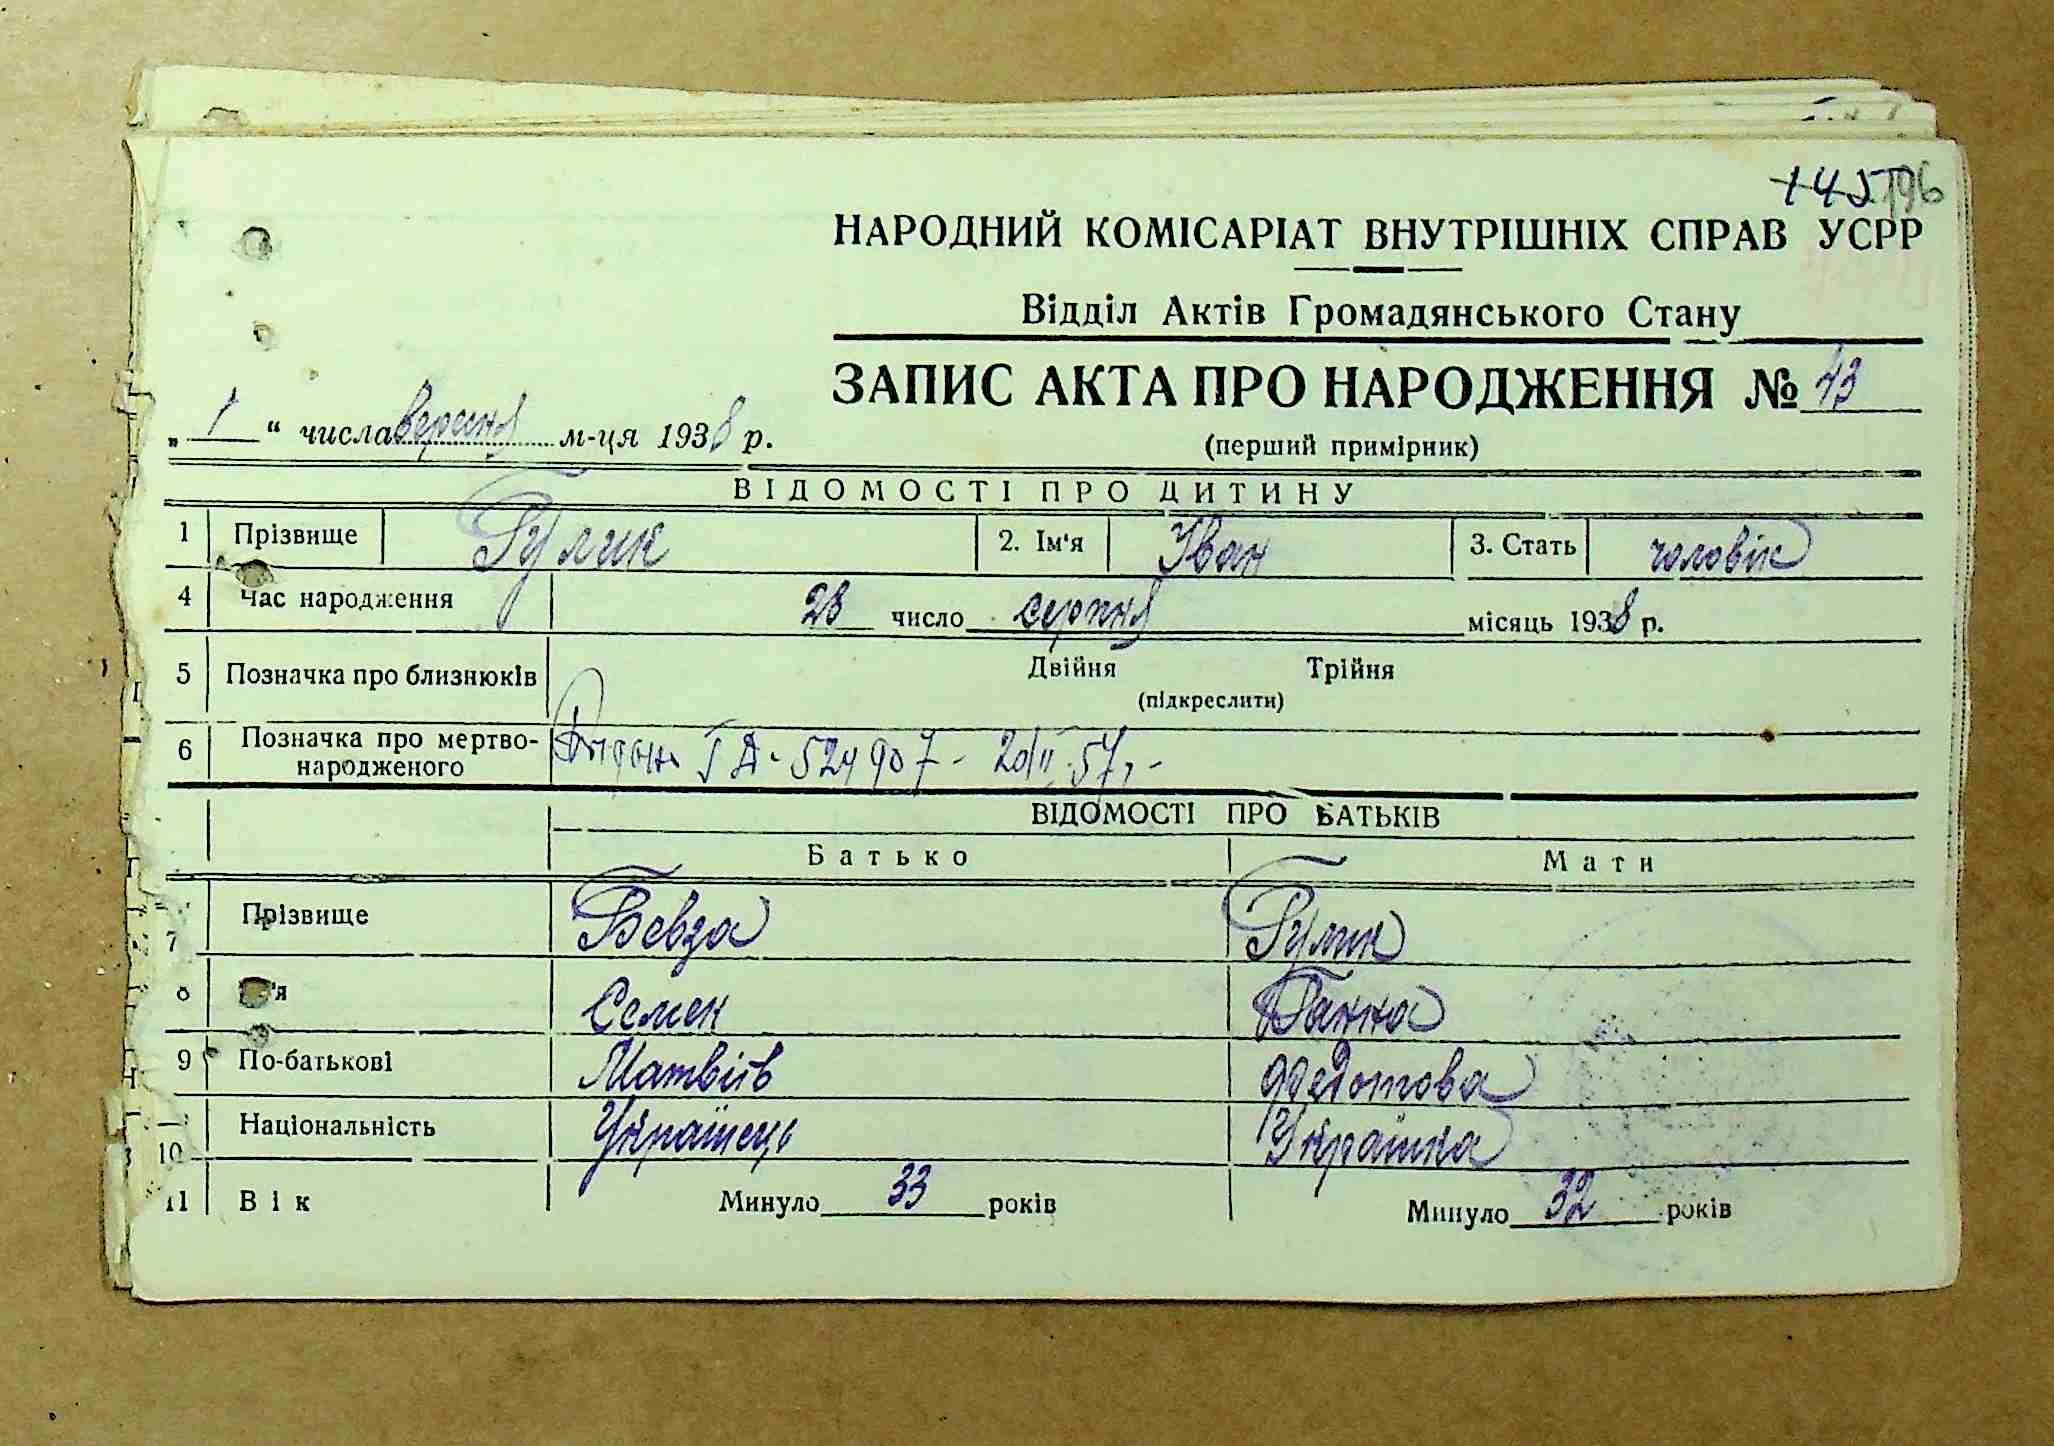 145 196
НАРОДНИЙ КОМІСАРІАТ ВНУТРІШНІХ СПРАВ УСРР
Відділ Актів Громадянського Стану
ЗАПИС АКТА ПРО НАРОДЖЕННЯ № 43
„ 1 “ числа вересня м-ця 1938 р.
(перший примірник)
ВІДОМОСТІ ПРО ДИТИНУ
1 Прізвище Гулик 2. Ім'я Іван 3. Стать чоловік
4 Час народження 28 число серпня місяць 1938 р.
5 Позначка про близнюків Двійня Трійня
(підкреслити)
6 Позначка про мертво-
народженого
524907 - 57
ВІДОМОСТІ ПРО БАТЬКІВ
Батько Мати
7 Прізвище Бевза Гулик
8 'я Семен Ганна
9 По-батькові Матвіїв Федотова
10 Національність Українець Українка
11 Вік Минуло 33 років Минуло 32 років